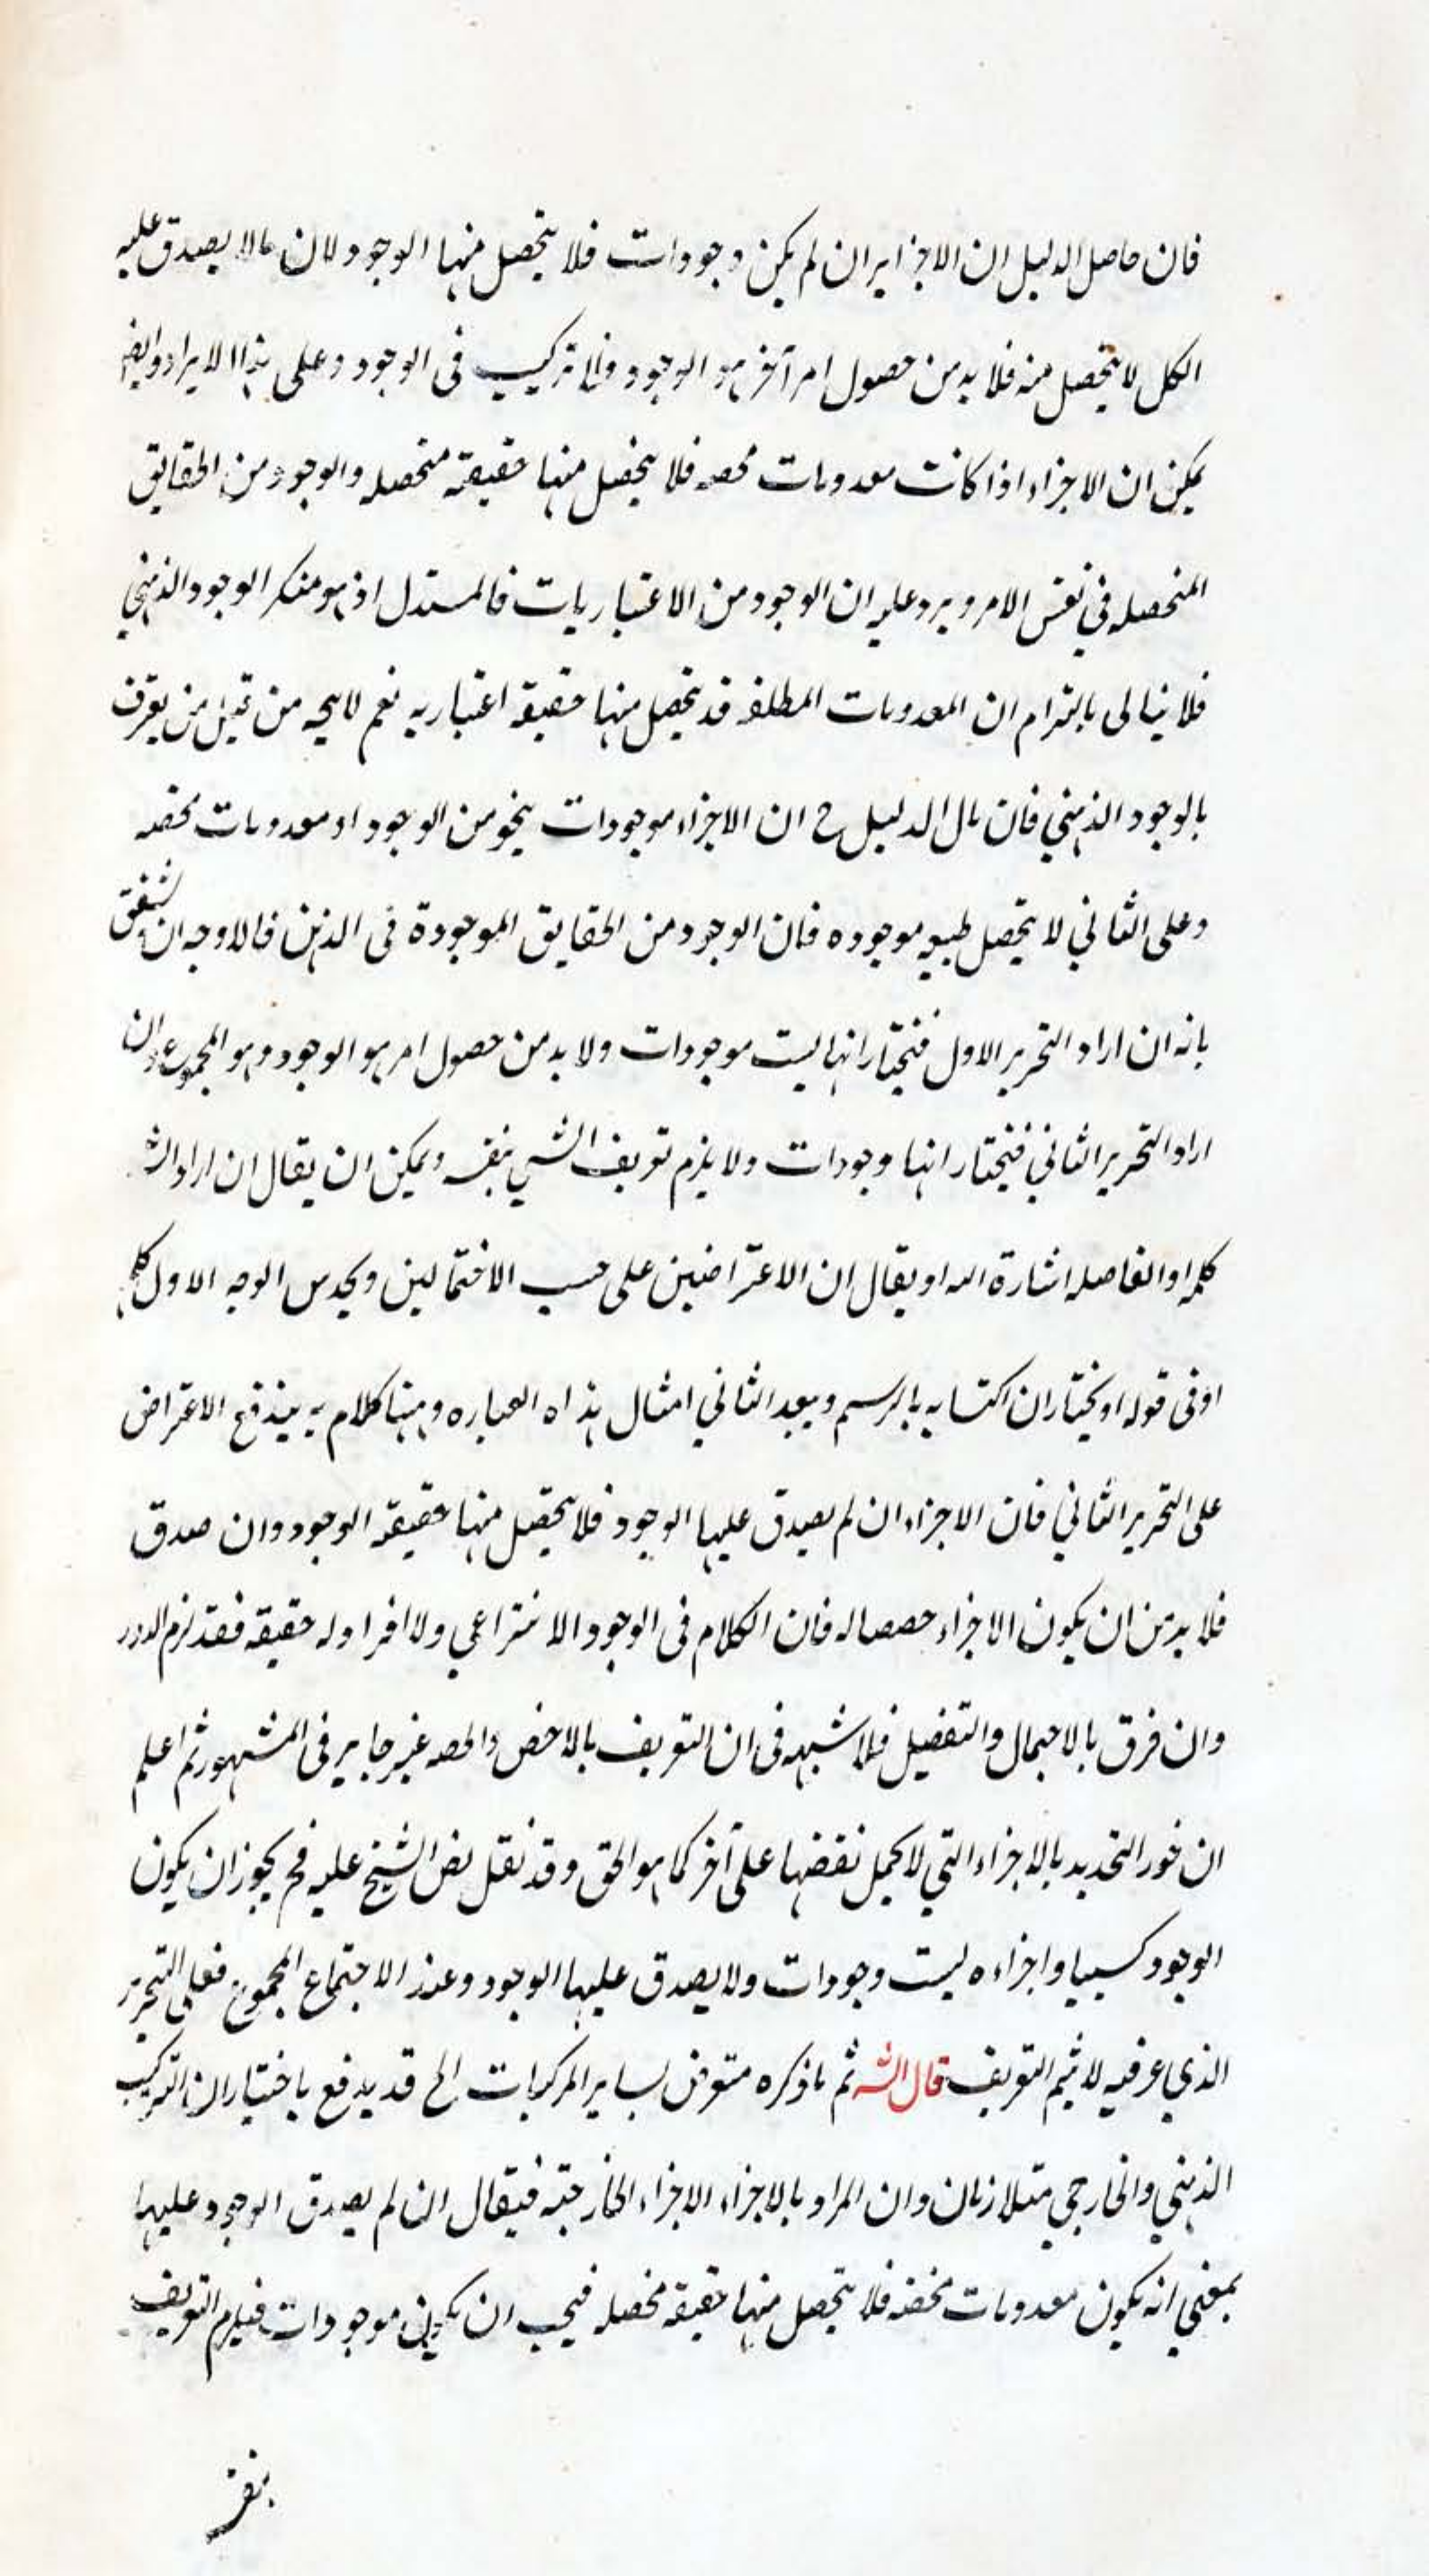 فان حاصل الدليل ان الاجزا ان لم يكن وجودات فلا يتحصل منها الوجود لان مالا يصدق عليه
الكل لا يتحصل منه فلا بد من حصول امر آخر هو الوجود فلا تركيب فى الوجود وعلى هذا الايراد وايضا
يمكن ان الاجزاء اذا كانت معدومات محصه فلا يتحصل منها حقيقة متحصله والوجود من الحقايق
المتحصله في نفس الامر ويرد عليه ان الوجود من الاعتباريات فالمستدل اذ هو منكر الوجود الذهني
فلا نبالى بالتزام ان المعدومات المطلقه قد يتحصل منها حقيقة اعتباريه نعم لا يتجه من قبل من يعترف
بالوجود الذهني فان مال الدليل ح ان الاجزاء موجودات بنحو من الوجود او معدومات محضه
وعلى الثاني لا يتحصل طبيعه موجوده فان الوجود من الحقايق الموجودة فى الذهن فالاوجه ان يشقق
بانه ان اراد التحرير الاول فنختار انها ليست موجودات ولا بد من حصول امر هو الوجود وهو المجموع وان
اراد التحرير الثاني فنختار انها وجودات ولا يلزم تعريف الشي بنفسه ويمكن ان يقال ان اراد الش
كلمه او الفاصله اشارة اليه او يقال ان الاعتراضين على حسب الاحتمالين ويحدس الوجه الاول كلمة
او فى قوله او نختار ان اكتسابه بالرسم ويبعد الثاني امثال هذه العباره وههنا كلام به يندفع الاعتراض
على التحرير الثاني فان الاجزاء ان لم يصدق عليها الوجود فلا يتحصل منها حقيقة الوجود وان صدق
فلا بد من ان يكون الاجزاء حصصا له فان الكلام فى الوجود الانتزاعي ولا افراد له حقيقة فقد لزم الدور
وان فرق بالاجمال والتفصيل فلا شبهه فى ان التعريف بالاخص والحصه غير جايز فى المشهور ثم اعلم
ان جوز التحديد بالاجزاء التي لا يحمل بعضها على آخر كما هو الحق وقد نقل نص الشيخ عليه فح يجوز ان يكون
الوجود كسبيا واجزاءه ليست وجودات ولا يصدق عليها الوجود وعند الاجتماع المجموع فعلى التحرير
الذي عرفيه لا يتم التعريف قال الش ثم ما ذكره متعرض لساير المركبات الخ قد يدفع باختيار ان التركيب
الذهني والخارجي متلازمان وان المراد بالاجزاء الاجزاء الخارجية فيقال ان لم يصدق الوجود عليها
بمعنى انه يكون معدومات محضه فلا يتحصل منها حقيقة محصله فيجب ان يكون موجودات فيلزم التعريف
بنفسه